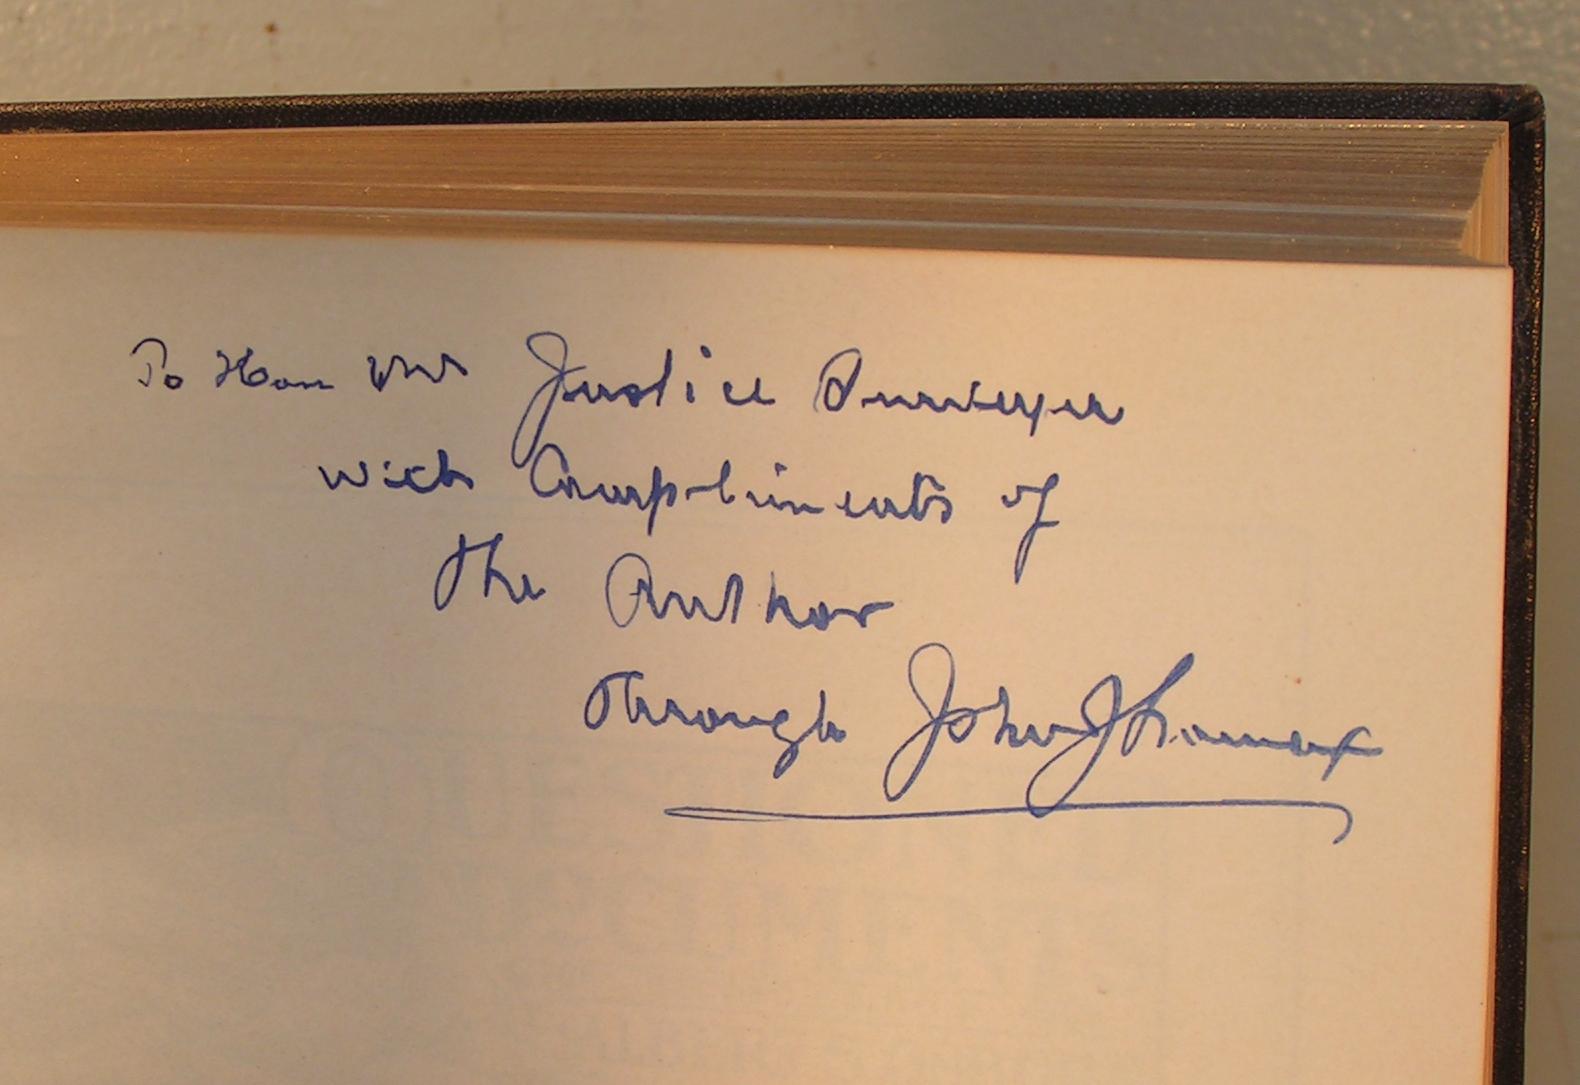 To Hon Mr Justice Surveyer
with Compliments of
The Author
Through John J Lomax